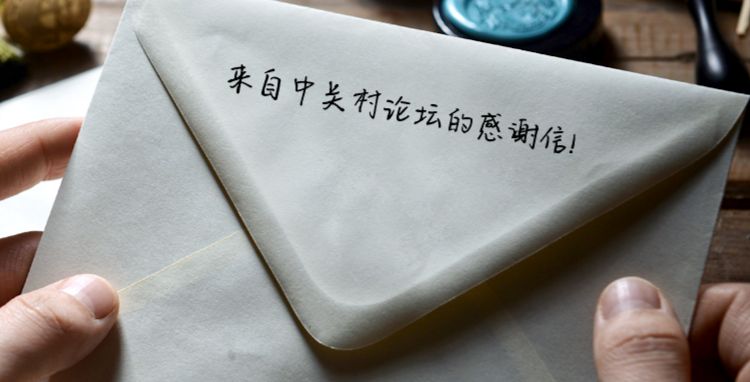 来自中关村论坛的感谢信!